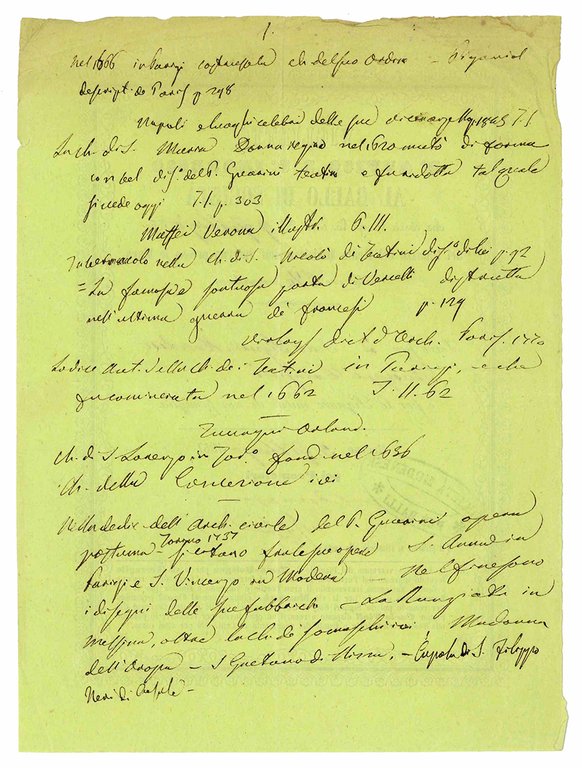 1.
nel 1666 in Parigi ch. del suo Ordine — Piganiol
descript. de Paris p 298
Napoli e luoghi celebri delle sue vicinanze Nap. 1845 T. I
La ch. di S. Maria Donna regina nel 620 mutò di forma
con bel dis.o del P. Guarini teatino e fu ridotta tal quale
si vede oggi T. I. p. 303
Maffei Verona illustr. P. III.
Tabernacolo nella ch. di S. Nicolò di Teatini dis.o di lui p. 92
= La famosa e sontuosa porta di Vercelli distrutta
nell'ultima guerra de' francesi p. 129
d'Arch. Paris. 1770
Lo dice Aut. della ch. dei Teatini in Parigi, e che
fu cominciata nel 1662 T. II. 62
Orland.
ch. di S. Lorenzo in Tor.o fond. nel 1636
ch. della Concezione ivi
Nella dedic. dell'Arch. civile del P. Guarini opera
postuma Torino 1737 si citano fra le sue opere S. Anna in
Parigi e S. Vincenzo in Modena — Nel fine sono
i disegni delle sue fabbriche — La Nunziata in
Messina, oltre la ch. de' Somaschi ivi Madonna
dell'Oropa — S Gaetano di Nizza, — Cupola di S. Filippo
Neri di Casale —